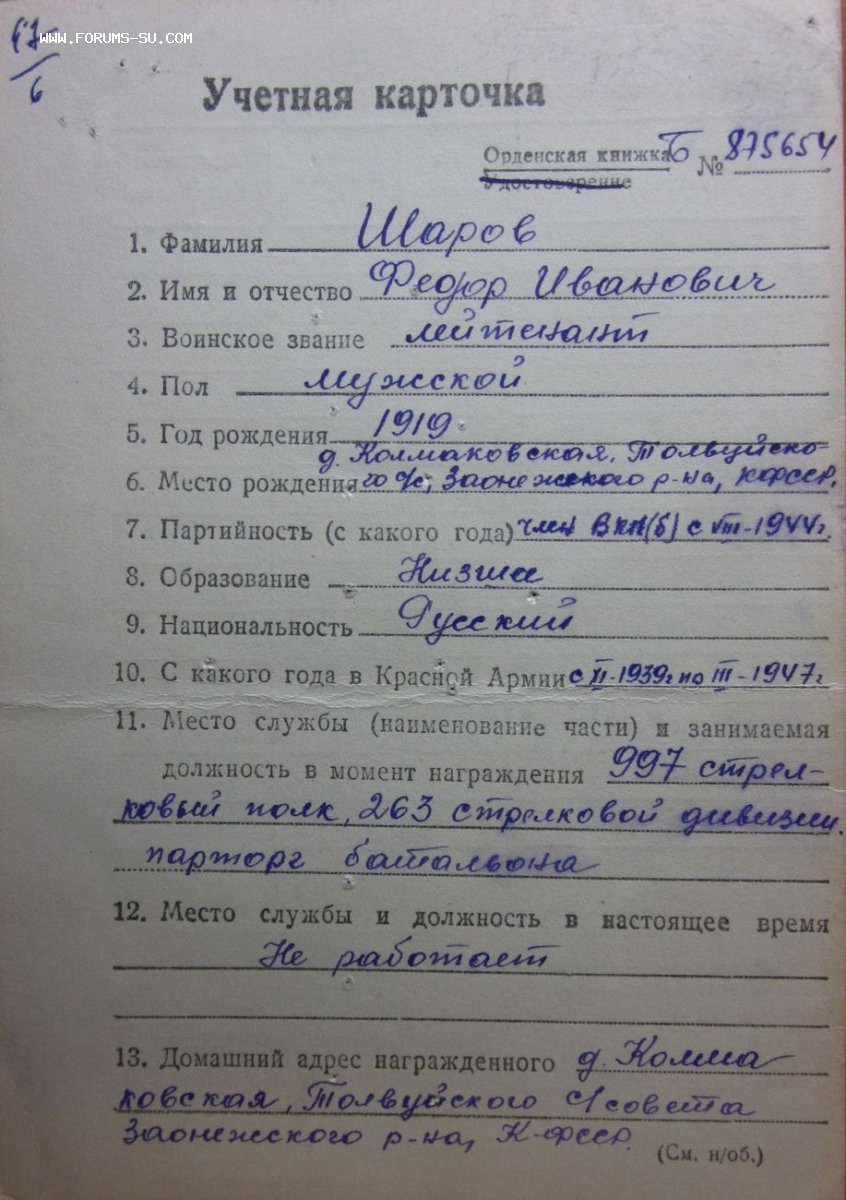 WWW.FORUMS-SU.COM
6
Учетная карточка
Орденская книжка Б № 875654
Удостоверение
1. Фамилия Шаров
2. Имя и отчество Федор Иванович
3. Воинское звание лейтенант
4. Пол мужской
5. Год рождения 1919
д. Колмаковская, Толвуйско-
6. Место рождения го с/с, Заонежского р-на, КФССР.
7. Партийность (с какого года) член ВКП(б) с VIII-1944г.
8. Образование Низша
9. Национальность Русский
10. С какого года в Красной Армии с XI-1939г по III-1947г
11. Место службы (наименование части) и занимаемая
должность в момент награждения 997 стрел-
ковый полк, 263 стрелковой дивизии.
парторг батальона
12. Место службы и должность в настоящее время
Не работает
13. Домашний адрес награжденного д. Колма-
ковская, Толвуйского с/совета
Заонежского р-на, К-ФССР.
(См. н/об.)